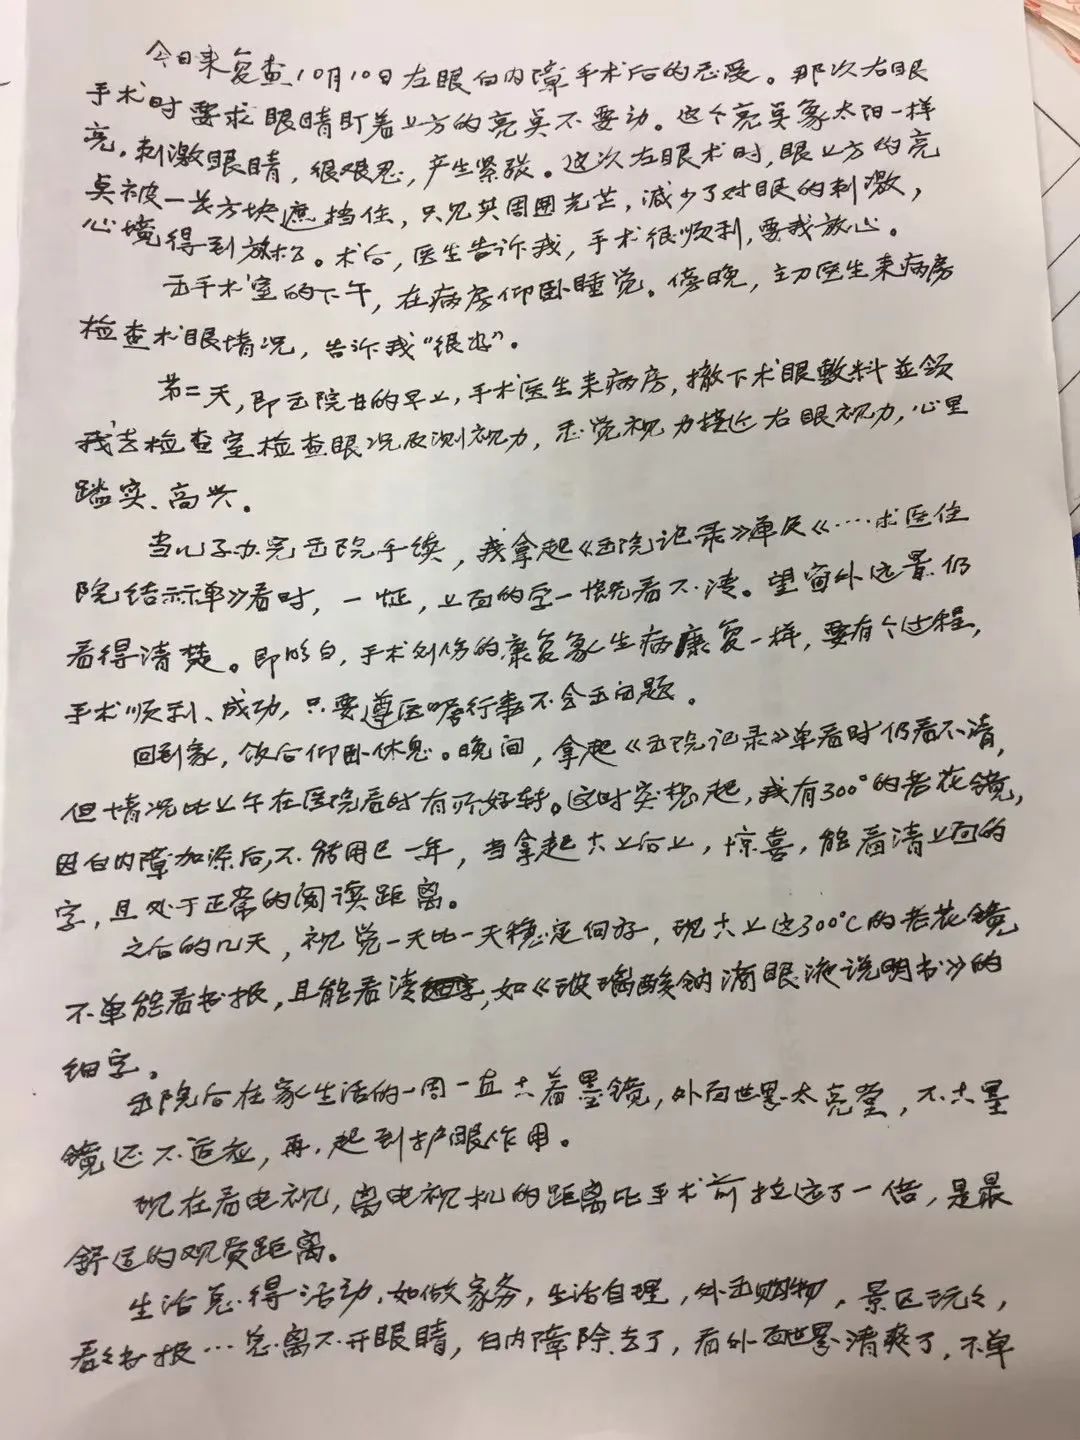 今日来复查10月10日左眼白内障手术后的感受。那次右眼
手术时要求眼睛盯着上方的亮点不要动。这个亮点象太阳一样
亮，刺激眼睛，很难忍，产生紧张。这次左眼术时，眼上方的亮
点被一长方块遮挡住，只见其周围光芒，减少了对眼的刺激，
心境得到放松。术后，医生告诉我，手术很顺利，要我放心。
出手术室的下午，在病房仰卧睡觉。傍晚，主刀医生来病房
检查术眼情况，告诉我“很好”。
第二天，即出院日的早上，手术医生来病房，撤下术眼敷料並领
我去检查室检查眼况及测视力，感觉视力接近右眼视力，心里
踏实、高兴。
当儿子办完出院手续，我拿起《出院记录》单及《……求医住
院结算单》看时，一怔，上面的字一愰看不清。望窗外远景仍
看得清楚。即明白，手术创伤的康复象生病康复一样，要有个过程，
手术顺利、成功，只要遵医嘱行事不会出问题。
回到家，饭后仰卧休息。晚间，拿起《出院记录》单看时仍看不清，
但情况比上午在医院看时有所好转。这时突想起，我有300°的老花镜，
因白内障加深后，不能用已一年，当拿起戴上后上，惊喜，能看清上面的
字，且处于正常的阅读距离。
之后的几天，视觉一天比一天稳定向好，现戴上这300℃的老花镜
不单能看书报，且能看清，如《玻璃酸钠滴眼液说明书》的
细字。
出院后在家生活的一周一直戴着墨镜，外面世界太亮堂，不戴墨
镜还不适应，再，起到护眼作用。
现在看电视，离电视机的距离比手术前拉远了一倍，是最
舒适的观赏距离。
生活总得活动，如做家务，生活自理，外出购物，景区玩玩，
看看书报…总离不开眼睛，白内障除去了，看外面世界清爽了，不单